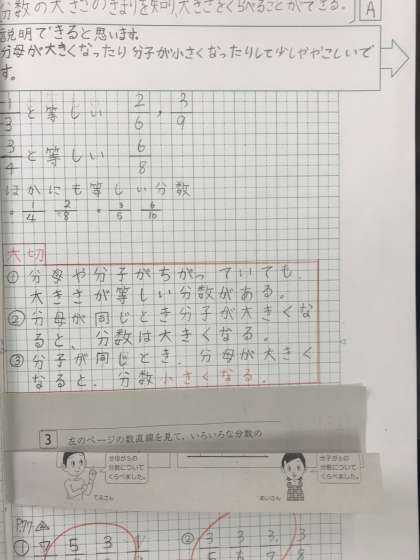 分数の大きさのきまりを知り、大きさをくらべることができる。 A
説明できると思います。
分母が大きくなったり分子が小さくなったりして少しややこしいで
す。
1/3 と等しい 2/6 , 3/9
3/4 と等しい 6/8
ほかにも等しい分数
・1/4 2/8 ・3/5 6/10
大切
① 分母や分子がちがっていても、
大きさが等しい分数がある。
② 分母が同じとき分子が大きくな
ると、分数は大きくなる。
③ 分子が同じとき、分母が大きく
なると、分数小さくなる。
3 左のページの数直線を見て、いろいろな分数の
分母が5の
分数について
くらべました。
てるさん
分子が3の
分数について
くらべました。
あいさん
P.77
① 7 5 3
② 3 3 3 3
5 6 7 8